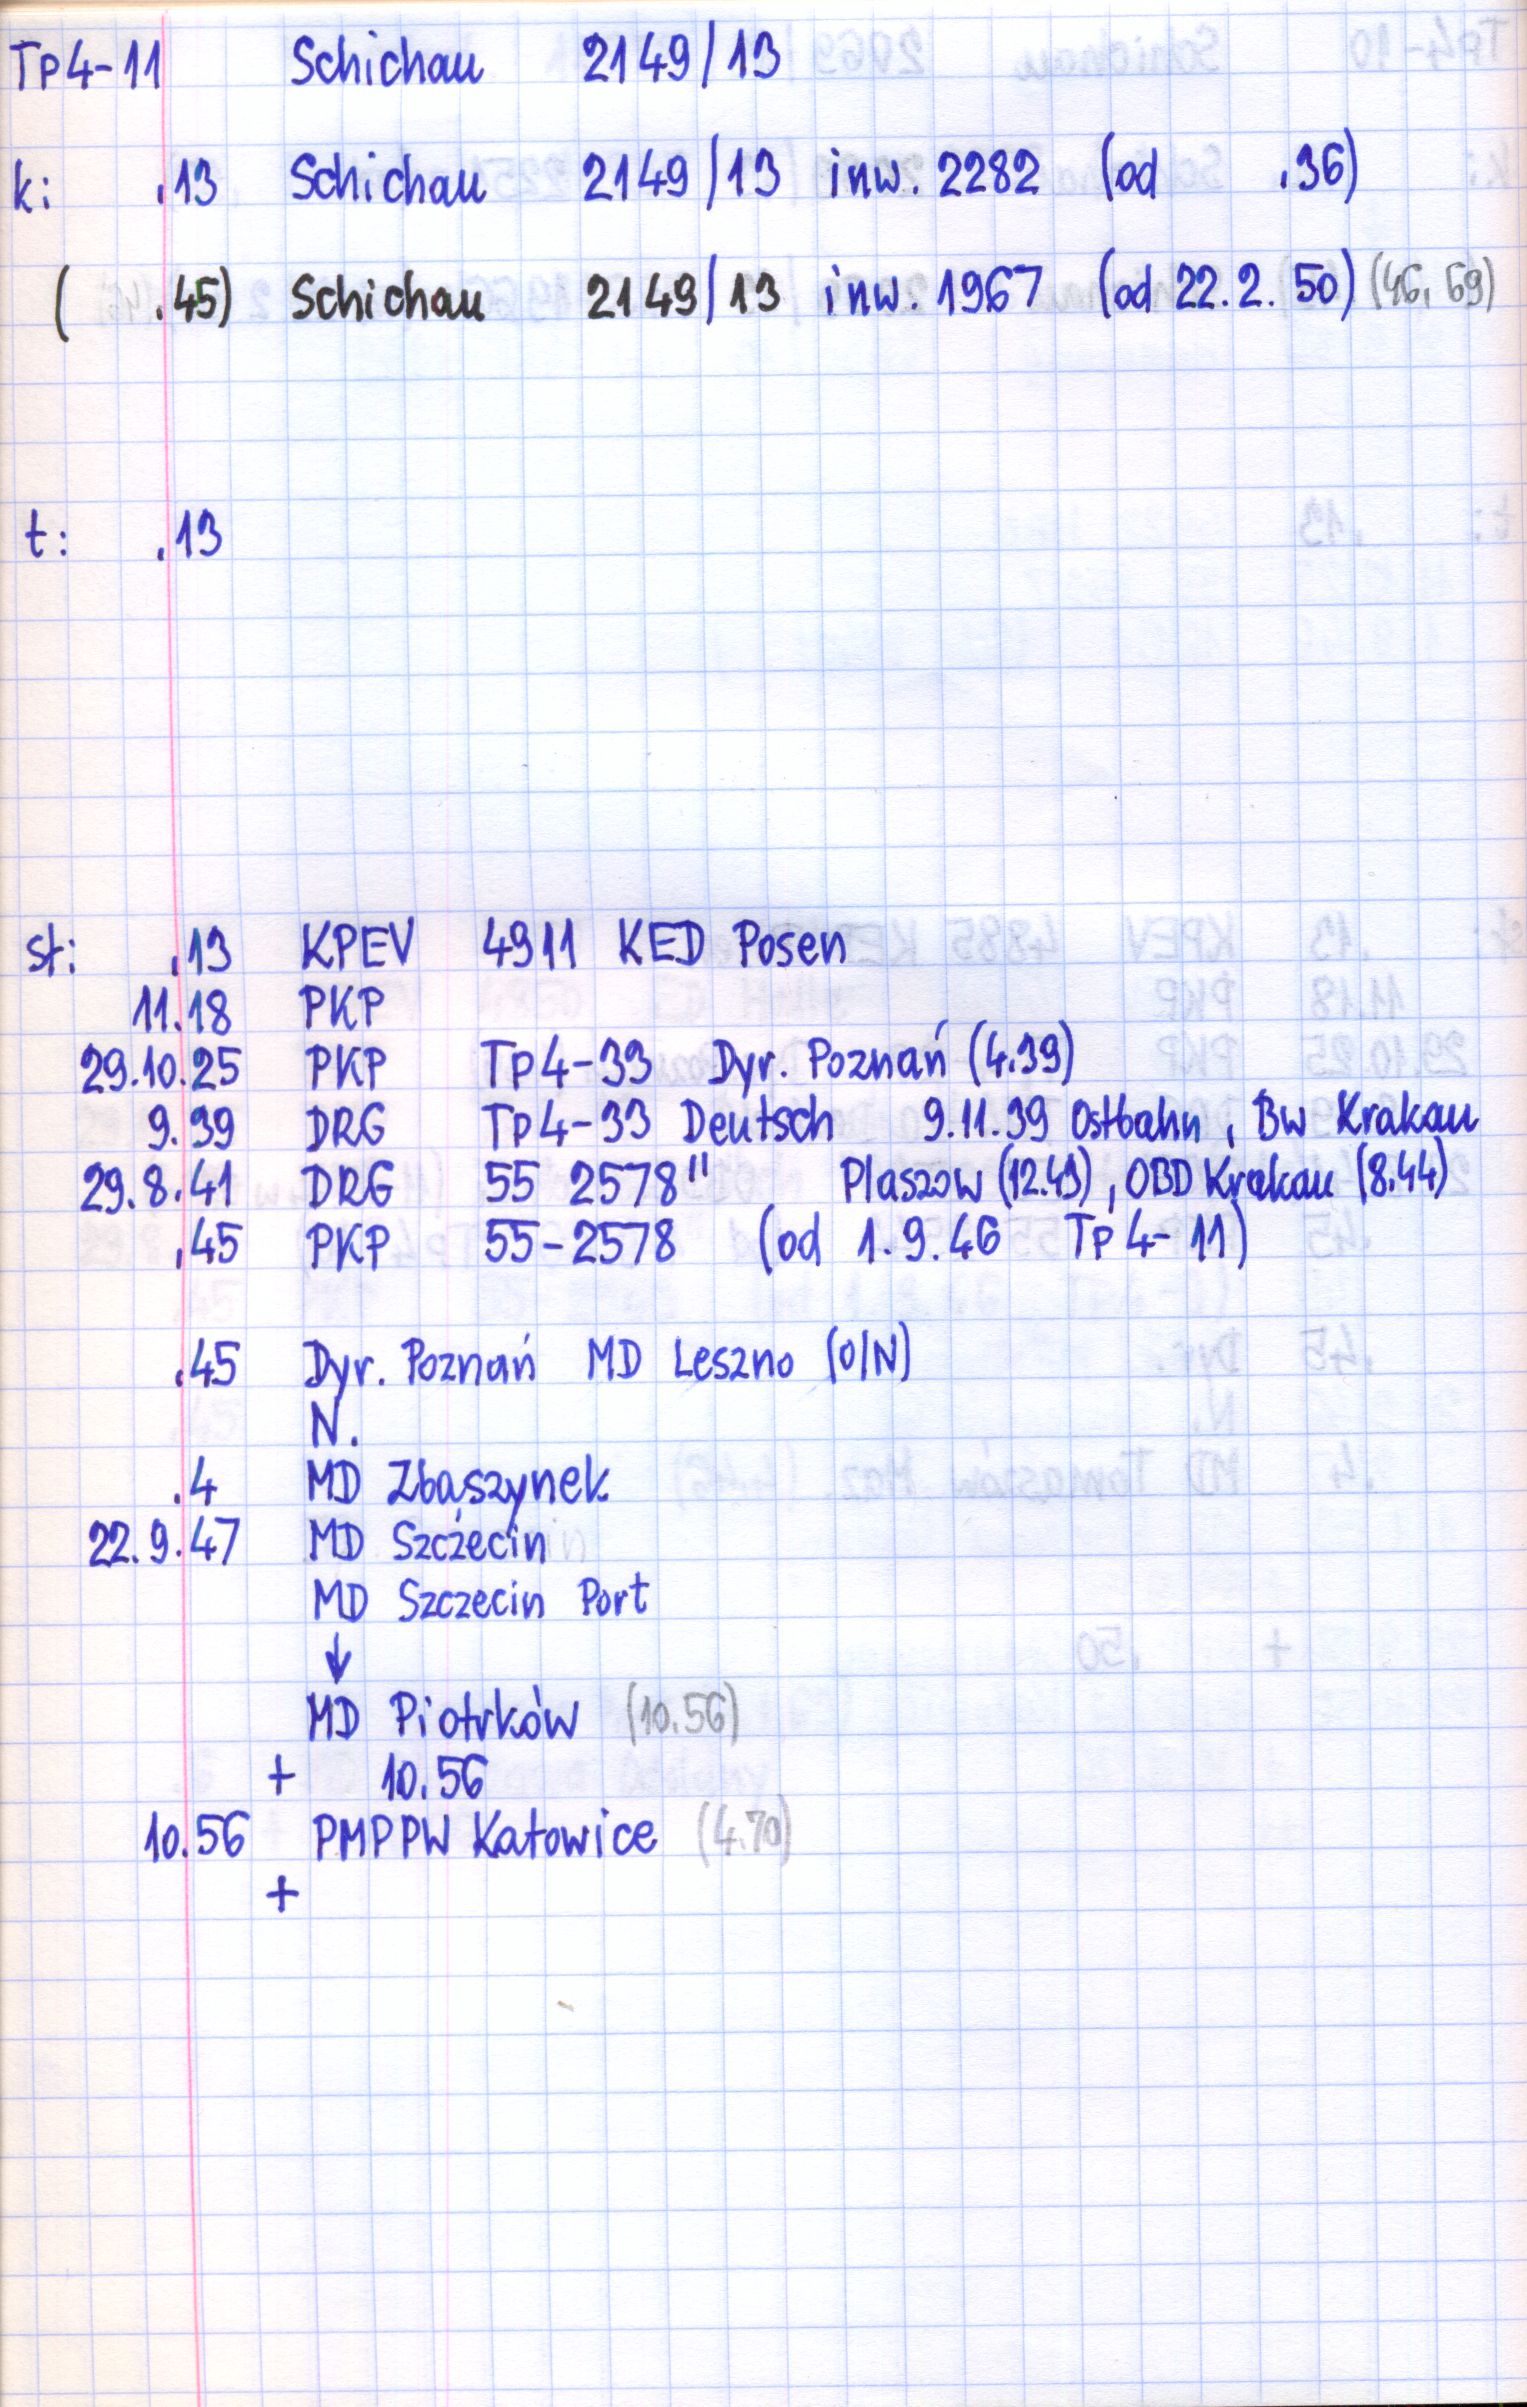 Tp4-11 Schichau 2149/13
k: .13 Schichau 2149/13 inw. 2282 (od .36)
( .45) Schichau 2149/13 inw. 1967 (od 22.2.50) (46, 69)
t: .13
st: .13 KPEV 4911 KED Posen
11.18 PKP
29.10.25 PKP Tp4-33 Dyr. Poznań (4.39)
9.39 DRG Tp4-33 Deutsch 9.11.39 Ostbahn, Bw Krakau
29.8.41 DRG 55 2578" Plaszow (12.43), OBD Krakau (8.44)
.45 PKP 55-2578 (od 1.9.46 Tp4-11)
.45 Dyr. Poznań MD Leszno (O/N)
N.
.4 MD Zbąszynek
22.9.47 MD Szczecin
MD Szczecin Port
↓
MD Piotrków (10.56)
+ 10.56
10.56 PMPPW Katowice (4.70)
+